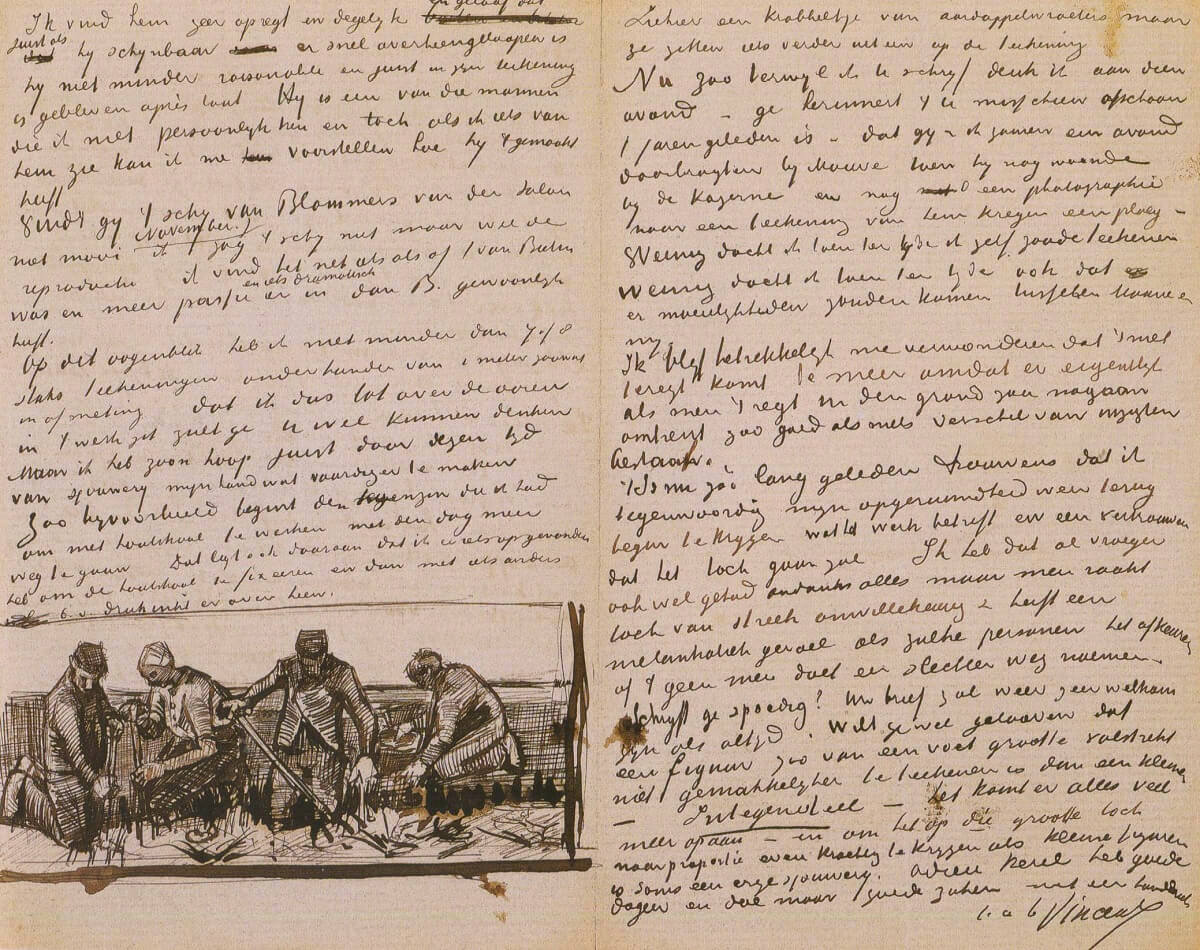 Ik vind hem zeer opregt en degelyk en geloof dat
juist als hy schynbaar er snel overheengeloopen is
hy niet minder raisonable en juist in zyn teekening
is gebleven après tout Hy is een van die mannen
die ik niet persoonlyk ken en toch als ik iets van
hem zie kan ik me voorstellen hoe hy 't gemaakt
heeft
Vindt gy 't schy van Blommers van den Salon
niet mooi (November.) ik zag 't schy niet maar wel de
reproductie ik vind het net als als of 't van Butin
was en meer passie en iets dramatisch er in dan B. gewoonlyk
heeft.
Op dit oogenblik heb ik niet minder dan 7 of 8
stuks teekeningen onderhanden van 1 meter zoowat
in afmeting dat ik dus tot over de ooren
in 't werk zit zult ge u wel kunnen denken
Maar ik heb zoon hoop juist door dezen tyd
van sjouwery myn hand wat vaardiger te maken
Zoo byvoorbeeld begint de tegenzin die ik had
om met houtskool te werken met den dag meer
weg te gaan Dat ligt ook daaraan dat ik iets opgevonden
heb om de houtskool te fixeeren en dan met iets anders
b.v. drukinkt er over heen.
Ziehier een krabbeltje van aardappelenrooiers maar
ze zitten iets verder uit een op de teekening
Nu zoo terwyl ik te schryf denk ik aan dien
avond – ge herinnert 't u misschien ofschoon
't jaren geleden is – dat gy & ik zamen een avond
doorbragten by Mauve toen hy nog woonde
by de Kazerne en nog een photographie
naar een teekening van hem kregen een ploeg –
Weinig dacht ik toen ter tyde ik zelf zoude teekenen
weinig dacht ik toen ter tyde ook dat
er moeielykheden zouden komen tusschen Mauve en
my.
Ik blyf betrekkelyk me verwonderen dat 't niet
teregt komt te meer omdat er eigentlyk
als men 't regt in den grond zou nagaan
omtrent zoo goed als niets verschil van inzigten
bestaat.
't Is nu zoo lang geleden trouwens dat ik
tegenwoordig myn opgeruimdheid weer terug
begin te krygen wat 't werk betreft en een vertrouwen
dat het toch gaan zal Ik heb dat al vroeger
ook wel gehad ondanks alles maar men raakt
toch van streek onwillekeurig & heeft een
melankoliek gevoel als zulke personen het afkeuren
of 't geen men doet een slechten weg noemen.
Schryft ge spoedig? Uw brief zal weer zeer welkom
zyn als altyd. Wilt ge wel gelooven dat
een figuur zoo van een voet grootte volstrekt
niet gemakkelyker te teekenen is dan een kleine
– Integendeel – het komt er alles veel
meer op aan – en om het op die grootte toch
naar proportie even krachtig te krygen als kleine figuren
is soms een erge sjouwery. Adieu kerel heb goede
dagen en doe maar goede zaken met een handdruk
t. à t. Vincent